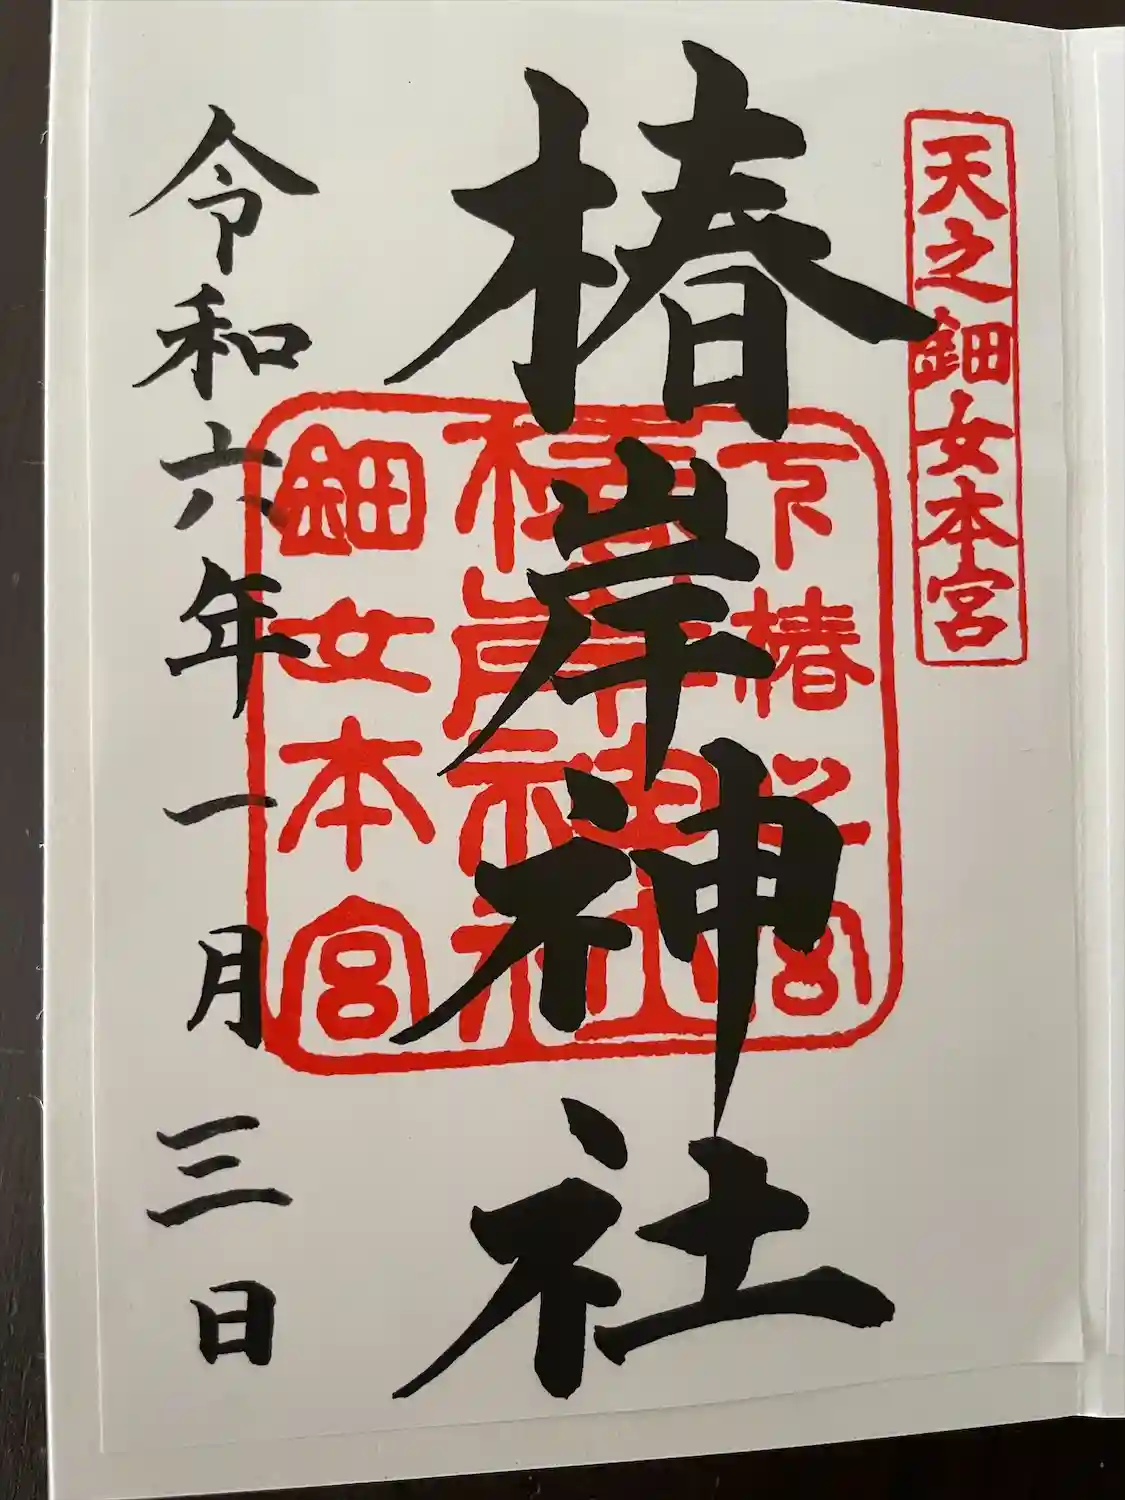 天之鈿女本宮
椿岸神社
下椿之宮
椿岸神社
鈿女本宮
令和六年一月三日